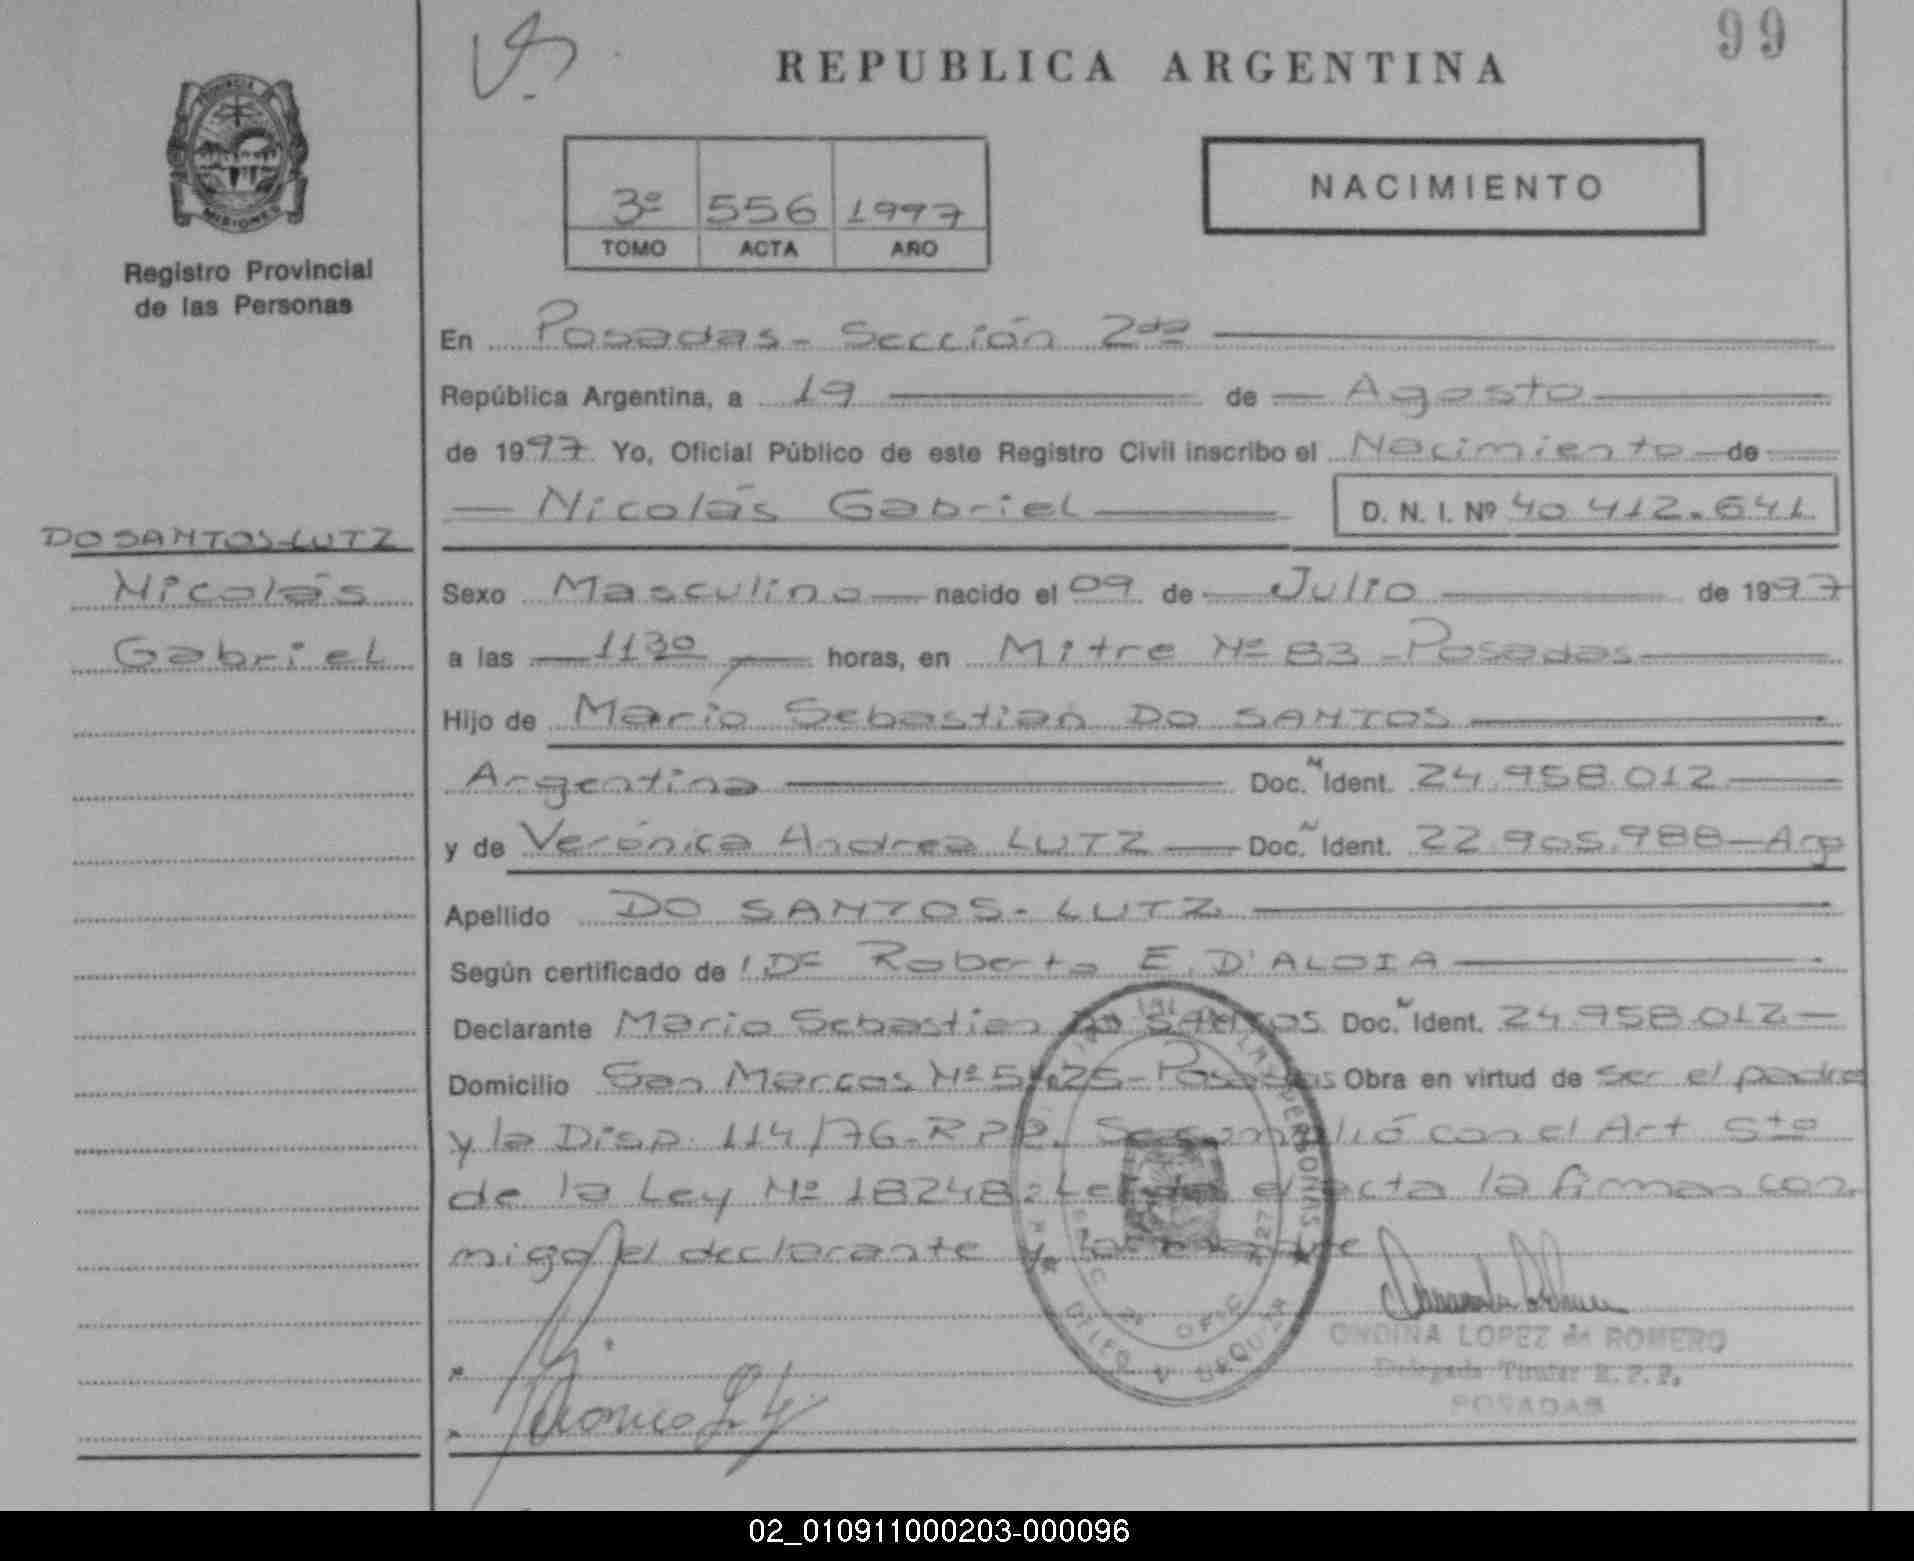 99
REPUBLICA ARGENTINA
PROVINCIA
MISIONES
Registro Provincial
de las Personas
3º 556 1997
TOMO ACTA AÑO
NACIMIENTO
En Posadas - Sección 2da
República Argentina, a 19 de Agosto
de 1997 Yo, Oficial Público de este Registro Civil inscribo el Nacimiento de
Nicolás Gabriel D. N. I. Nº 40.412.641
DO SANTOS-LUTZ
Nicolás
Gabriel
Sexo Masculino nacido el 09 de Julio de 1997
a las 1130 horas, en Mitre Nº 83 - Posadas
Hijo de Mario Sebastian DO SANTOS
Argentina Doc. Ident. 24.958.012
y de Verónica Andrea LUTZ Doc. Ident. 22.905.988 - Arg
Apellido DO SANTOS - LUTZ
Según certificado de Dr Roberto E. D'ALOIA
Declarante Mario Sebastian DO SANTOS Doc. Ident. 24.958.012
Domicilio San Marcos Nº Posadas Obra en virtud de ser el padre
y la Disp. 114/76-RPP. Se cumplió con el Art 5to
de la Ley Nº 18248. Leída el acta la firman con
migo el declarante y la
ONDINA LOPEZ de ROMERO
Delegada Titular R. P. P.
POSADAS
02_010911000203-000096